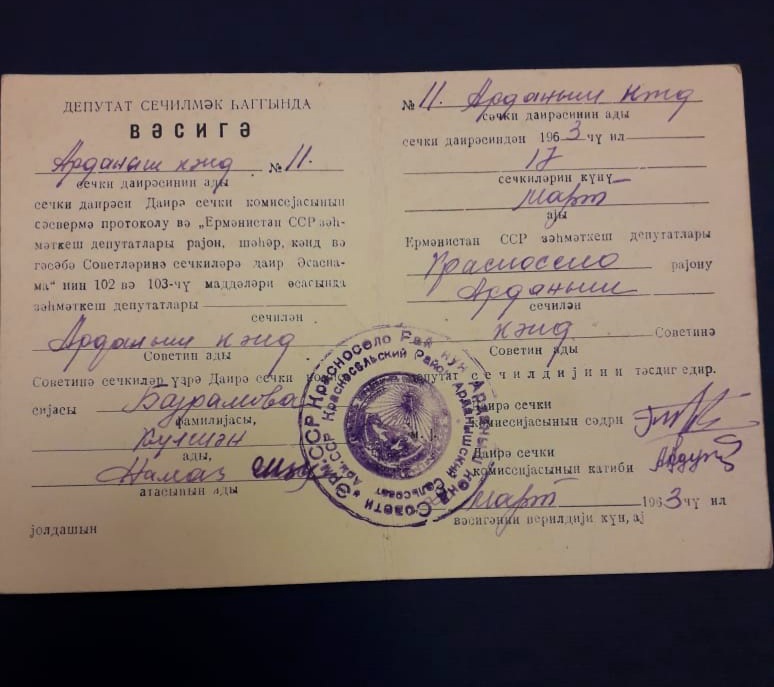 ДЕПУТАТ СЕЧИЛМӘК ҺАГГЫНДА
ВӘСИГӘ
Арданыш кәнд № 11.
сечки даирәсинин ады
сечки даирәси Даирә сечки комиссјасынын
сәсвермә протоколу вә „Ермәнистан ССР зәһ-
мәткеш депутатлары рајон, шәһәр, кәнд вә
гәсәбә Советләринә сечкиләрә даир Әсасна-
мә“нин 102 вә 103-чү маддәләри әсасында
зәһмәткеш депутатлары
сечилән
Арданыш кәнд
Советин ады
Советинә сечкиләр үзрә Даирә сечки
сијасы Бајрамова
фамилијасы,
Күлшән
ады,
Намаз
атасынын ады
јолдашын
№ 11. Арданыш кәнд
сәчки даирәсинин ады
сечки даирәсиндән 1963чү ил
17
сечкиләрин күнү
Март
ајы
Ермәнистан ССР зәһмәткеш депутатлары
Красносело рајону
Арданыш
сечилән
кәнд Советинә
Советин ады
депутат сечилдијини тәсдиг едир.
Даирә сечки
комиссијасынын сәдри
Даирә сечки
комиссијасынын катиби
Март 1963чү ил
вәсигәнин верилдији күн, ај
Эрм.ССР Красносело Рајкун Арданыш кәнд Совети
Арм.ССР Красносельский Район Арданышский Сельсовет